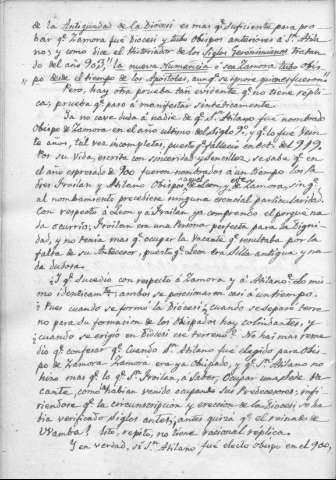 de la Antiguedad de la Diocesi es mas q.e suficiente para pro
bar q.e Zamora fué diocesi y tubo Obispos anteriores á S.n Atila
no; y como dice el Historiador de los Siglos Geronimianos tratan
do del año 905, "la nueva Numancia ó sea Zamora tubo Obis
po desde el tiempo de los Apóstoles, aunq.e se ignore quienes fuesen."
Pero, hay otra prueba tan evidente q.e no tiene répli
ca; prueba q.e paso á manifestar sinteticamente.
Ya no cave duda á nadie de q.e S.n Atilano fué nombrado
Obispo de Zamora en el año ultimo del Siglo 9.o y q.e lo fué vein
te años, tal vez incompletos, puesto q.e fallecio en Oct. del 919.
Por su vida, escrita con sinceridad y sencillez se sabe q.e en
el año expresado de 900 fueron nombrados á un tiempo los Pa
dres Froilan y Atilano Obispos, aquel de Leon, y este de Zamora, sin q.e
al nombramiento precediese ninguna esencial particularidad.
Con respecto á Leon y á Froilan ya comprendo el porque na
da ocurrio; Froilan era una Persona perfecta para la Digni
dad, y no tenia mas q.e ocupar la vacante q.e resultaba por la
falta de su Antecesor, puesto q.e Leon era Silla antigua, y na
da dudosa.
¿Y q.e sucedio con respecto á Zamora y á Atilano? Lo mis
mo identicam.te; ambos se posesionaron casi á un tiempo.
¿Pues cuando se formó la Diocesi? ¿cuando se separó terre
no para su formacion de los Obispados hoy colindantes, y
¿cuando se erigió en Diocesi ese terreno? No hai mas reme
dio q.e confesar q.e cuando S.n Atilano fué elegido para Obis
po de Zamora, Zamora era ya Obispado, y q.e S.n Atilano no
hizo mas q.e lo q.e S.n Froilan, á saber, Ocupar una Sede Va
cante, como habian venido ocupando sus Predecesores; infi
riendose q.e la circunscripcion y ereccion de la Diocesi se ha
bia verificado siglos antes, ¿antes quizá q.e el reinado de
Wamba? Esto, repito, no tiene racional réplica.
Y en verdad, si S.n Atilano fué electo obispo en el 900,